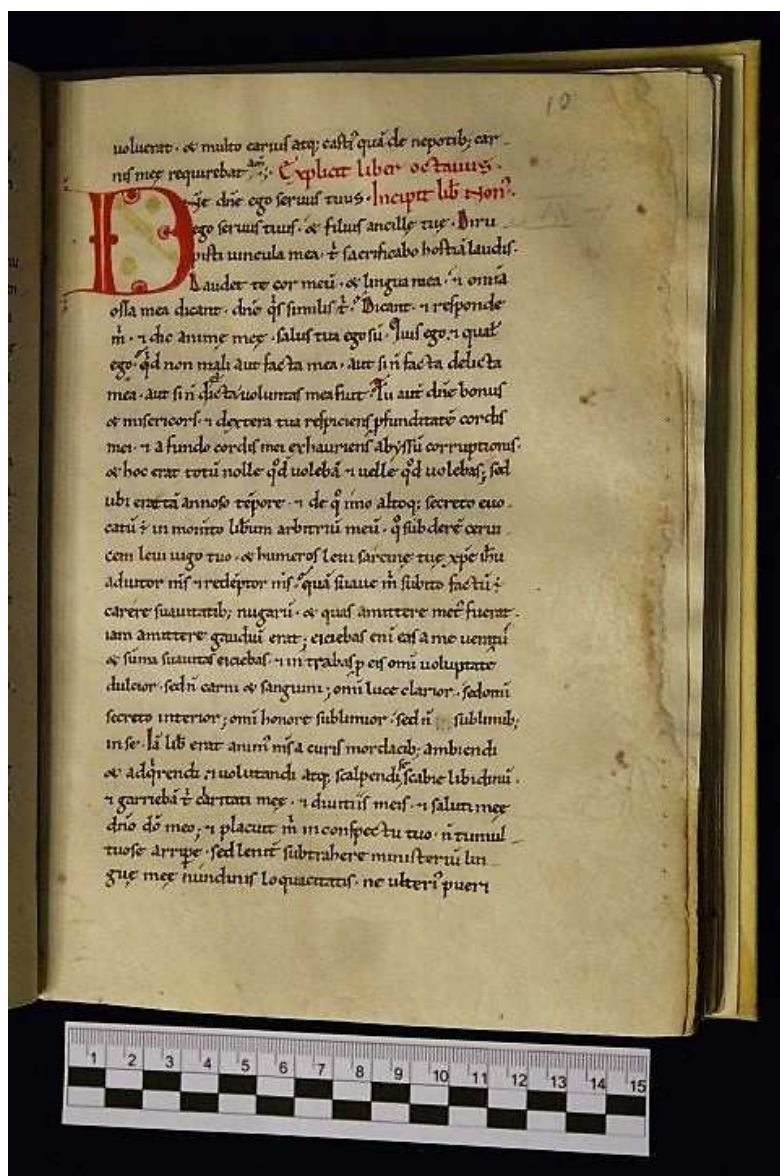 10
voluerat · & multo carius atq; casti᾽ quā de nepotib; car
nis meę requirebat am̅ ;· Explicit liber octauus ·
Dñe dñe ego seruus tuus · Incipit lib̄ Non᾽ ·
ego seruus tuus · & filius ancillę tuę · Diru
pisti uincula mea · t̄ sacrificabo hostiā laudis ·
Laudet te cor meū · & lingua mea · & om̄ia
ossa mea dicant · dn̄e q̄s similis t̄ · Dicant · ⁊ responde
m̄ · ⁊ dic animę meę · salus tua ego sū · Quis ego · ⁊ qual̄
ego · Qd̄ non mali aut facta mea · aut si n̄ facta dekcta
mea · aut si n̄ dicta uoluntas mea fuit · Tu aut̄ dn̄e bonus
& misericors · ⁊ dextera tua respiciens pfunditatē cordis
mei · ⁊ a fundo cordis mei exhauriens abyssū corruptionis ·
& hoc erat totū nolle qd̄ uolebā ⁊ uelle qd̄ uolebas ; sed
ubi erat tā annoso tēpore · ⁊ de q̊ imo altoq; secreto euo
catū ÷ in mom̄to lib̄um arbitriū meū · q̊ subderē cerui
cem leui iugo tuo · & humeros leui sarcinę tuę xp̄e ih̄u
adiutor m̄s ⁊ redēptor m̄s · quā suaue m̄ subito factū ÷
carere suauitatib; nugarū · & quas amittere met᾽ fuerat ·
iam amittere gaudiū erat ; eiciebas eni eas a me uera tū
& sūma suauitas eiciebas · ⁊ intrabas p eis omi uoluptate
dulcior · sed n̄ carni & sanguini ; omi luce clarior · sed omi
secreto interior ; omi honore sublimior · sed n̄ sublimib;
in se · Iā lib̄ erat anim᾽ m̄s a curis mordacib; ambiendi
& adq̊rendi · ⁊ uolutandi atq; scalpendi scabie libidinū ·
⁊ garriebā t̄ claritati meę · ⁊ diuitiis meis · ⁊ saluti meę
dn̄o dō meo ; ⁊ placuit m̄ in conspectu tuo · n̄ tumul
tuose arripe · sed lenit̄ subtrahere ministeriū lin
guę meę nundinis loquacitatis · ne ulteri᾽ pueri
1 2 3 4 5 6 7 8 9 10 11 12 13 14 15